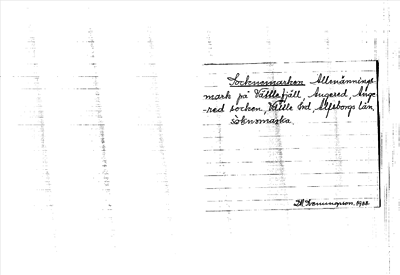 Socknemarken Allmännings-
mark på Vättlefjäll, Angered, Ange-
-red socken, Vättle hd, Älfsborgs län.
söknomarka.
1922.